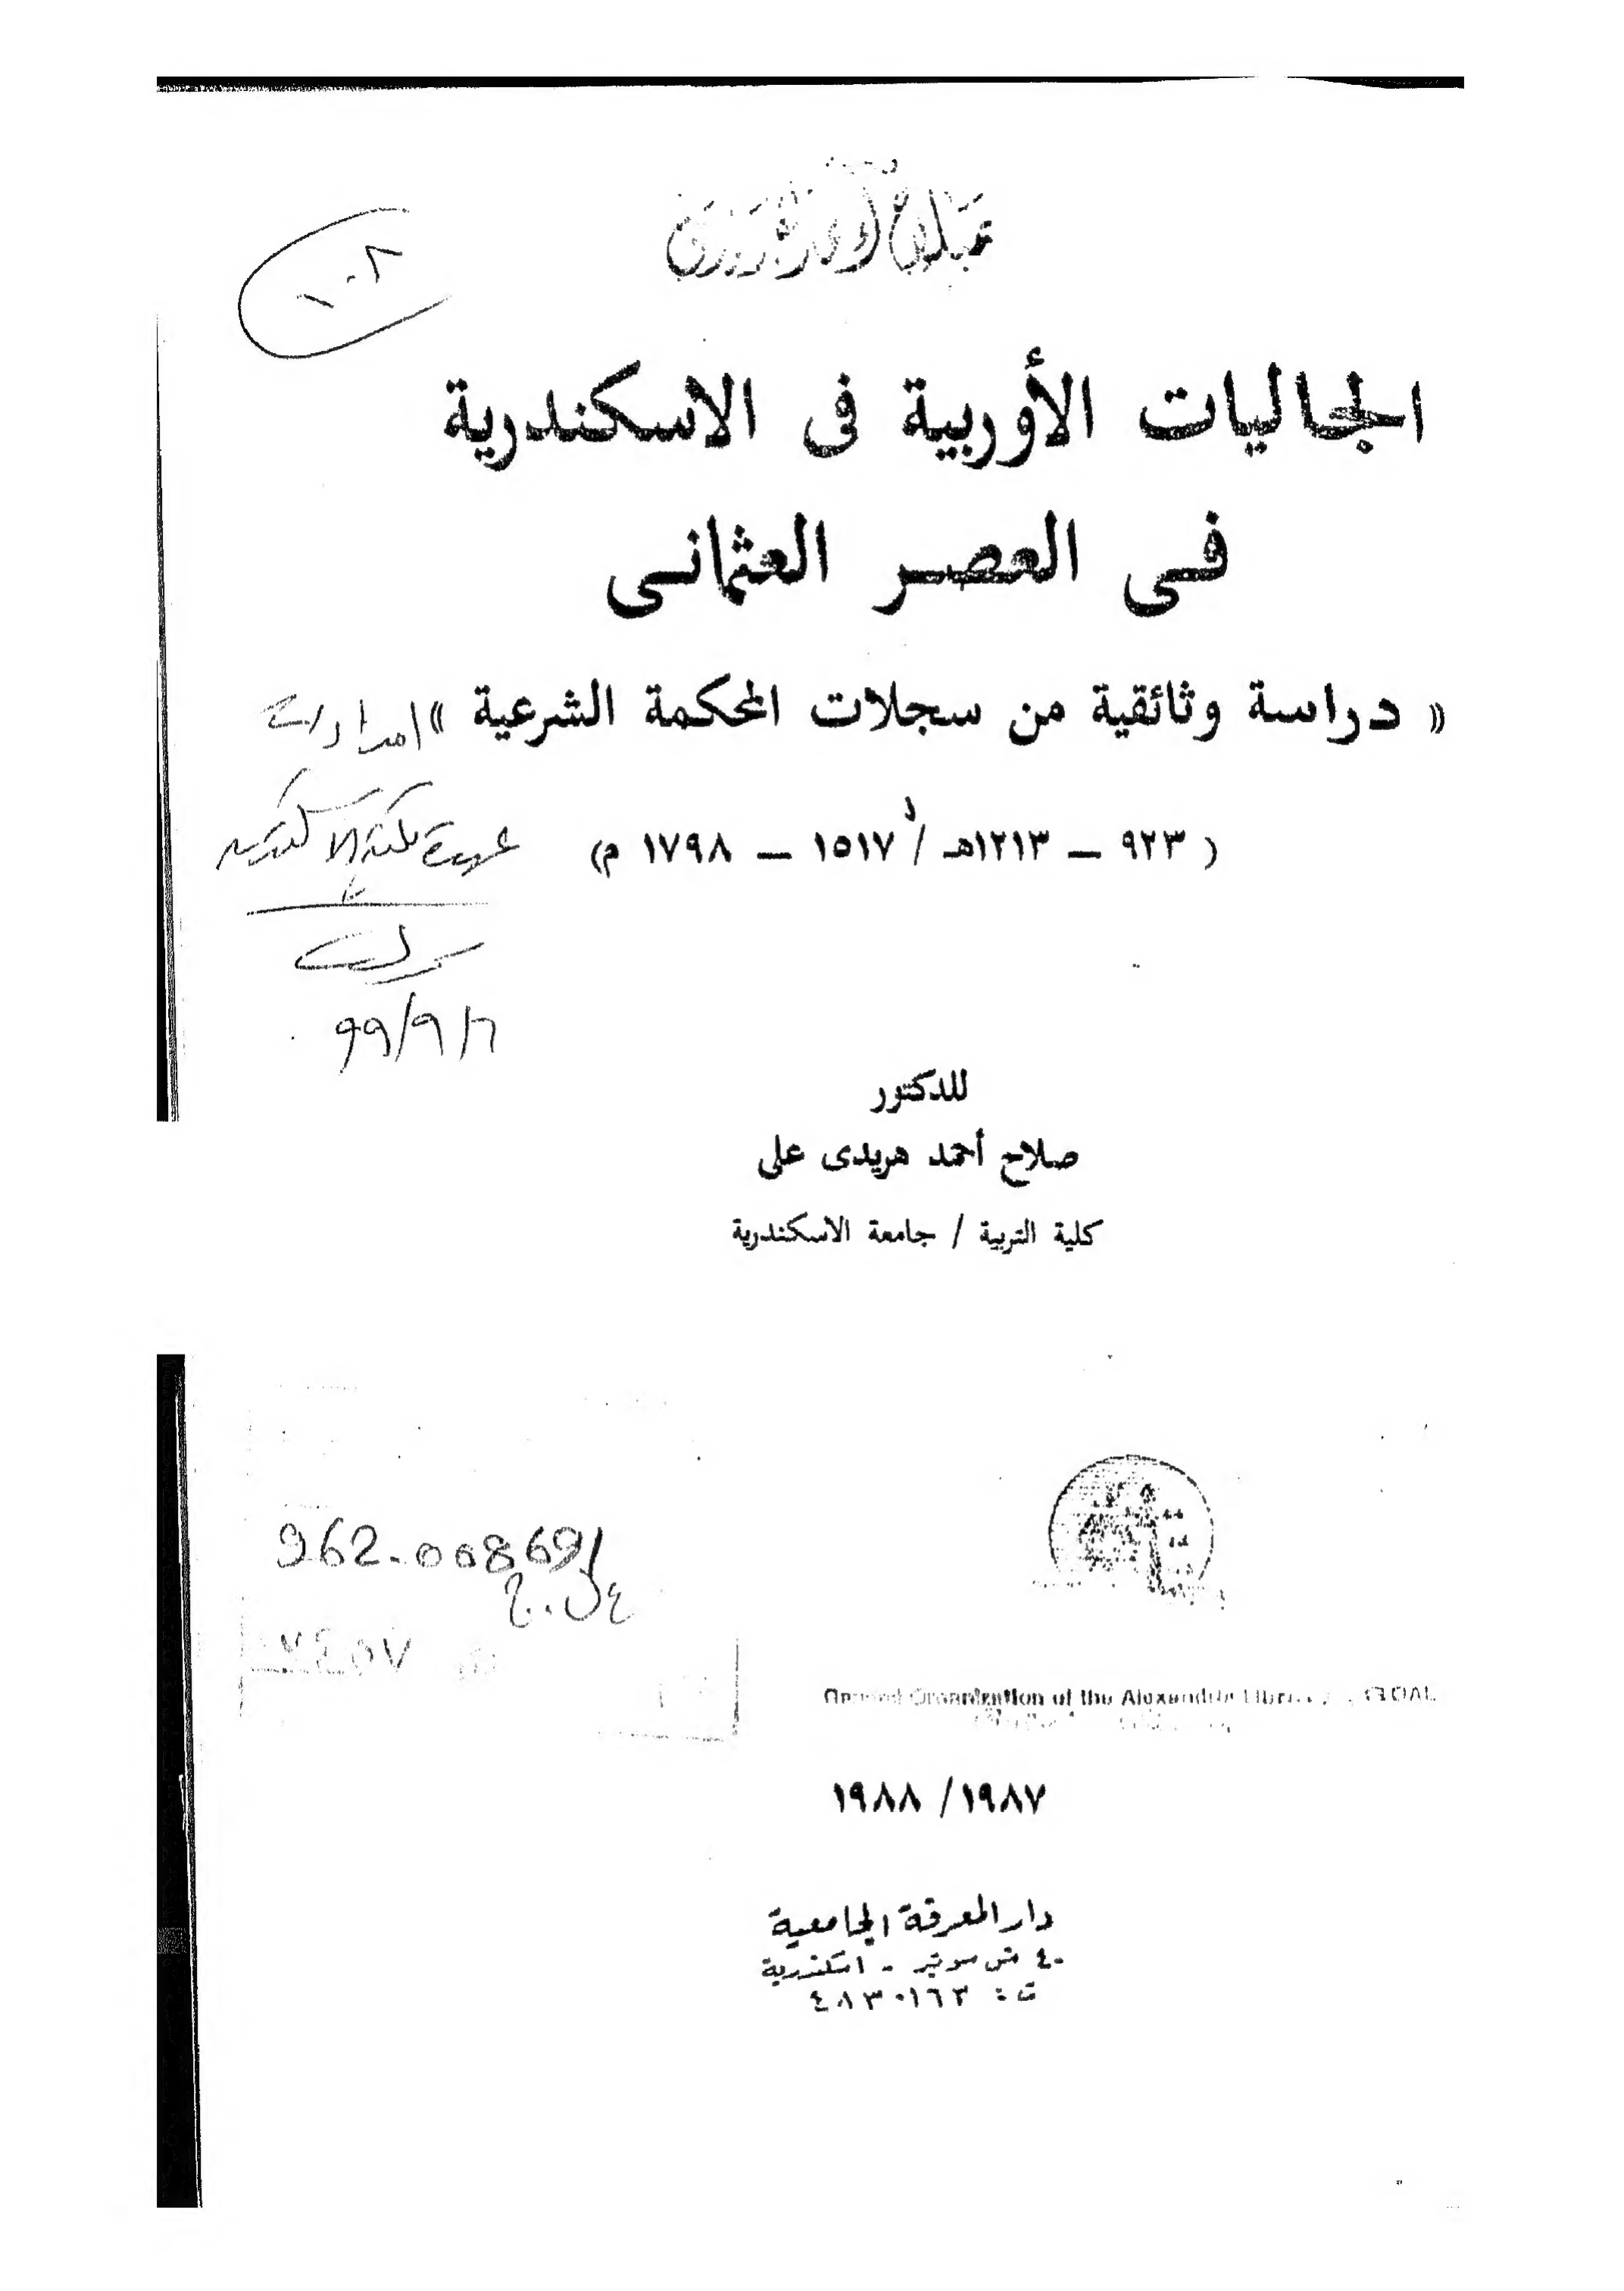 ١٠٨
الجاليات الأوربية فى الاسكندرية
فى العصر العثمانى
« دراسة وثائقية من سجلات المحكمة الشرعية »
( ٩٢٣ – ١٢١٣هـ / ١٥١٧ – ١٧٩٨ م)
٦/٩/٩٩
للدكتور
صلاح أحمد هريدى على
كلية التربية / جامعة الاسكندرية
962.008691
General Organization of the Alexandria Library GOAL
١٩٨٧/ ١٩٨٨
دار المعرفة الجامعية
٤٠ ش سوتير - اسكندرية
ت : ٤٨٣٠١٦٣